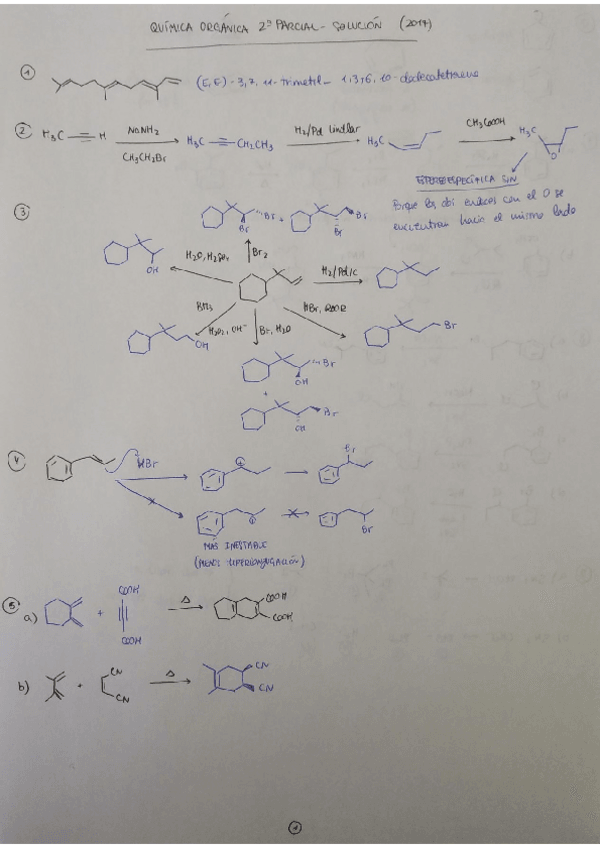 QUÍMICA ORGÁNICA 2º PARCIAL - SOLUCIÓN (2017)
1 (E, E) - 3, 7, 11 - trimetil - 1, 3, 6, 10 - dodecatetraeno
2 H₃C ≡ H NaNH₂ CH₃CH₂Br H₃C ≡ CH₂CH₃ H₂/Pd Lindlar H₃C CH₃COOOH H₃C O
ESTEREOESPECÍFICA SIN
Porque los dos enlaces con el O se
encuentran hacia el mismo lado
3 Br Br + Br Br
OH H₂O, H₂SO₄ Br₂ H₂/Pd/C
BH₃ H₂O₂, OH⁻ Br₂ H₂O HBr, ROOR
OH Br
Br
OH
+
Br
OH
4 HBr ⊕ Br
⊕ Br
MÁS INESTABLE
(MENOS HIPERCONJUGACIÓN)
5 a) + COOH COOH Δ COOH COOH
b) + CN CN Δ CN CN
1